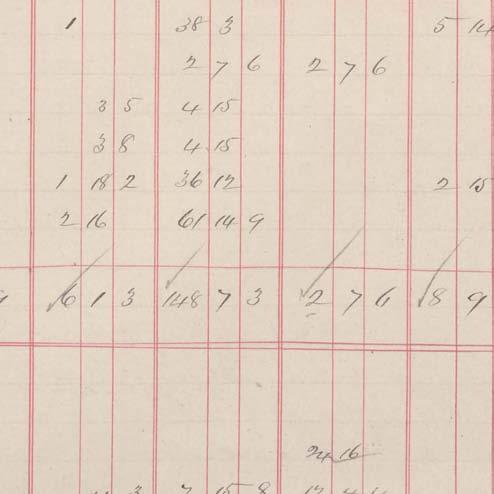 1 38 3 5 14
2 7 6 2 7 6
3 5 4 15
3 8 4 15
1 18 2 36 12 2 15
2 16 61 14 9
6 1 3 148 7 3 2 7 6 8 9
24 16
3 7 15 8